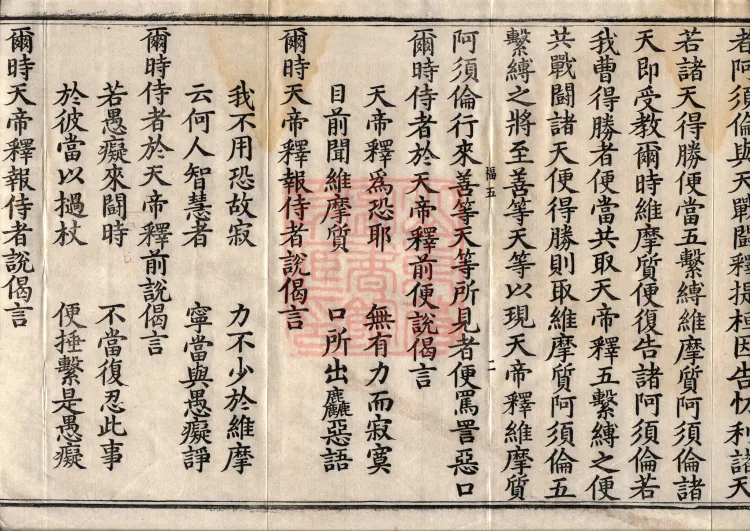 者阿須倫與天戰鬪釋提桓因告忉利諸天
若諸天得勝便當五繫縛維摩質阿須倫諸
天即受教爾時維摩質便復告諸阿須倫若
我曹得勝者便當共取天帝釋五繫縛之便
共戰鬪諸天便得勝則取維摩質阿須倫五
繫縛之將至善等天等以現天帝釋維摩質
福五 二
阿須倫行來善等天等所見者便罵詈惡口
爾時侍者於天帝釋前便說偈言
天帝釋爲恐耶 無有力而寂寞
目前聞維摩質 口所出麤惡語
爾時天帝釋報侍者說偈言
我不用恐故寂 力不少於維摩
云何人智慧者 寧當與愚癡諍
爾時侍者於天帝釋前說偈言
若愚癡來鬪時 不當復忍此事
於彼當以撾杖 便捶繫是愚癡
爾時天帝釋報侍者說偈言